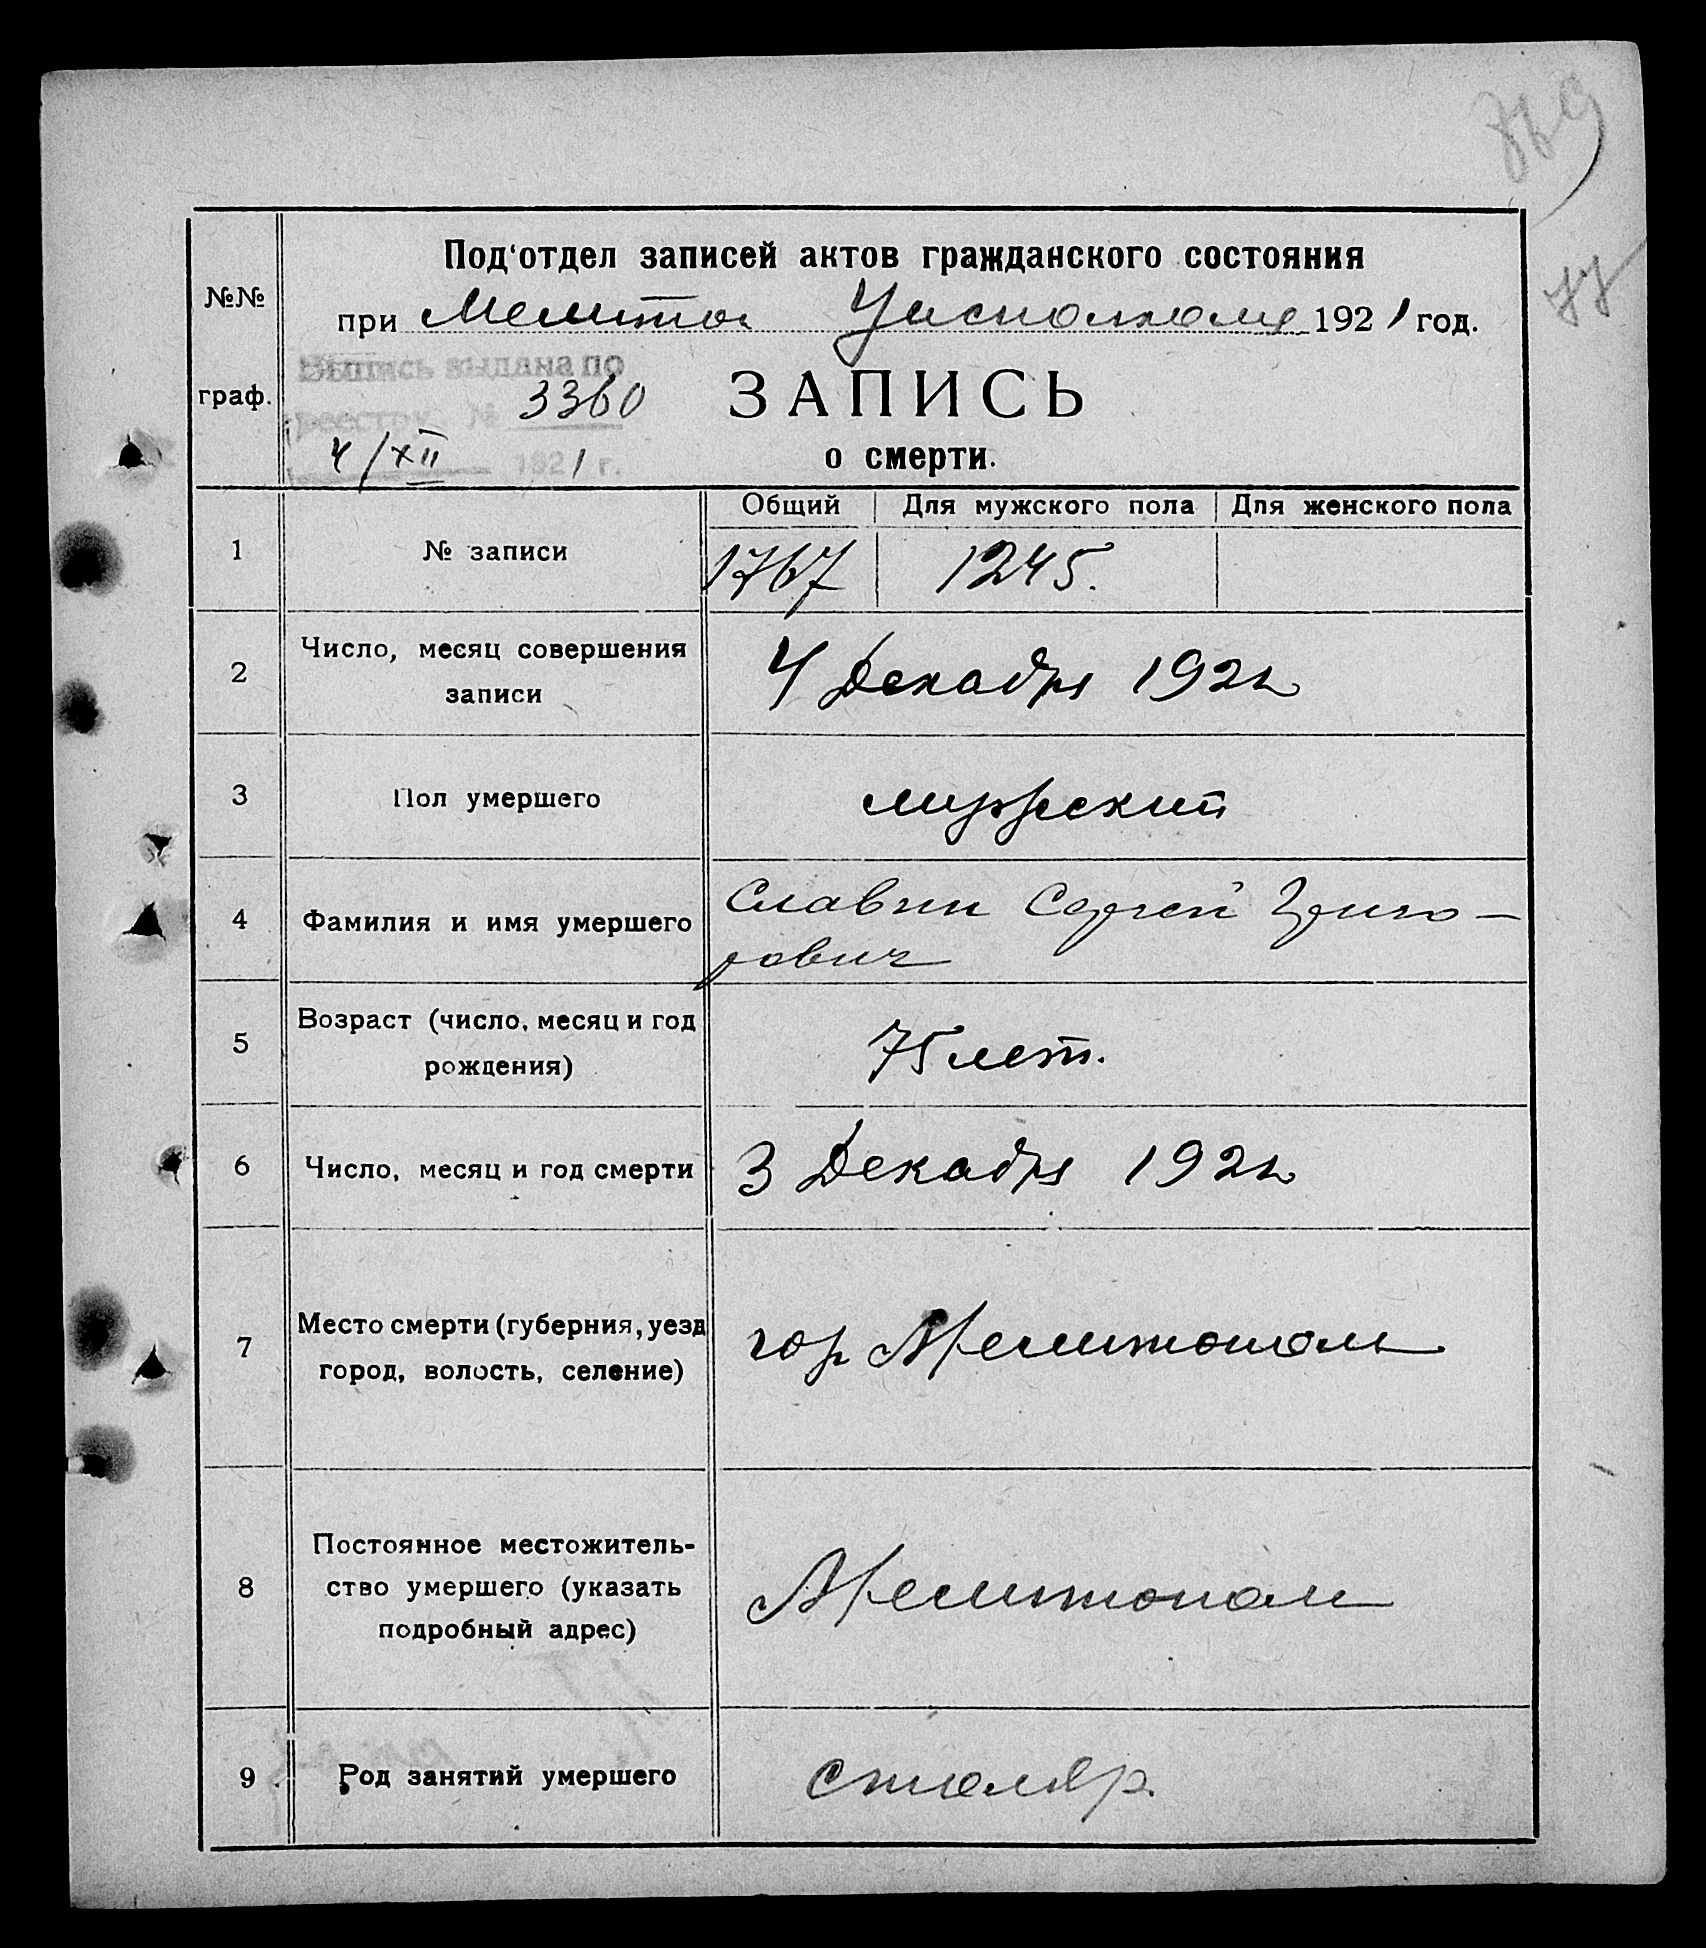 769
77
Под‘отдел записей актов гражданского состояния
№№
при Мелито. Уисполкоме 1921 год.
Выпись выдана по
граф.
реестру № 3360
ЗАПИСЬ
4/XII 1921 г.
о смерти.
Общий Для мужского пола Для женского пола
1 № записи 1767 1245.
2 Число, месяц совершения записи 4 Декабря 192
3 Пол умершего мужеский
4 Фамилия и имя умершего Славин Сергей Григо-
рович
5 Возраст (число, месяц и год рождения) 75 лет.
6 Число, месяц и год смерти 3 Декабря 192
7 Место смерти (губерния, уезд город, волость, селение) гор Мелитополь
8 Постоянное местожитель-
ство умершего (указать подробный адрес) Мелитополь
9 Род занятий умершего столяр.